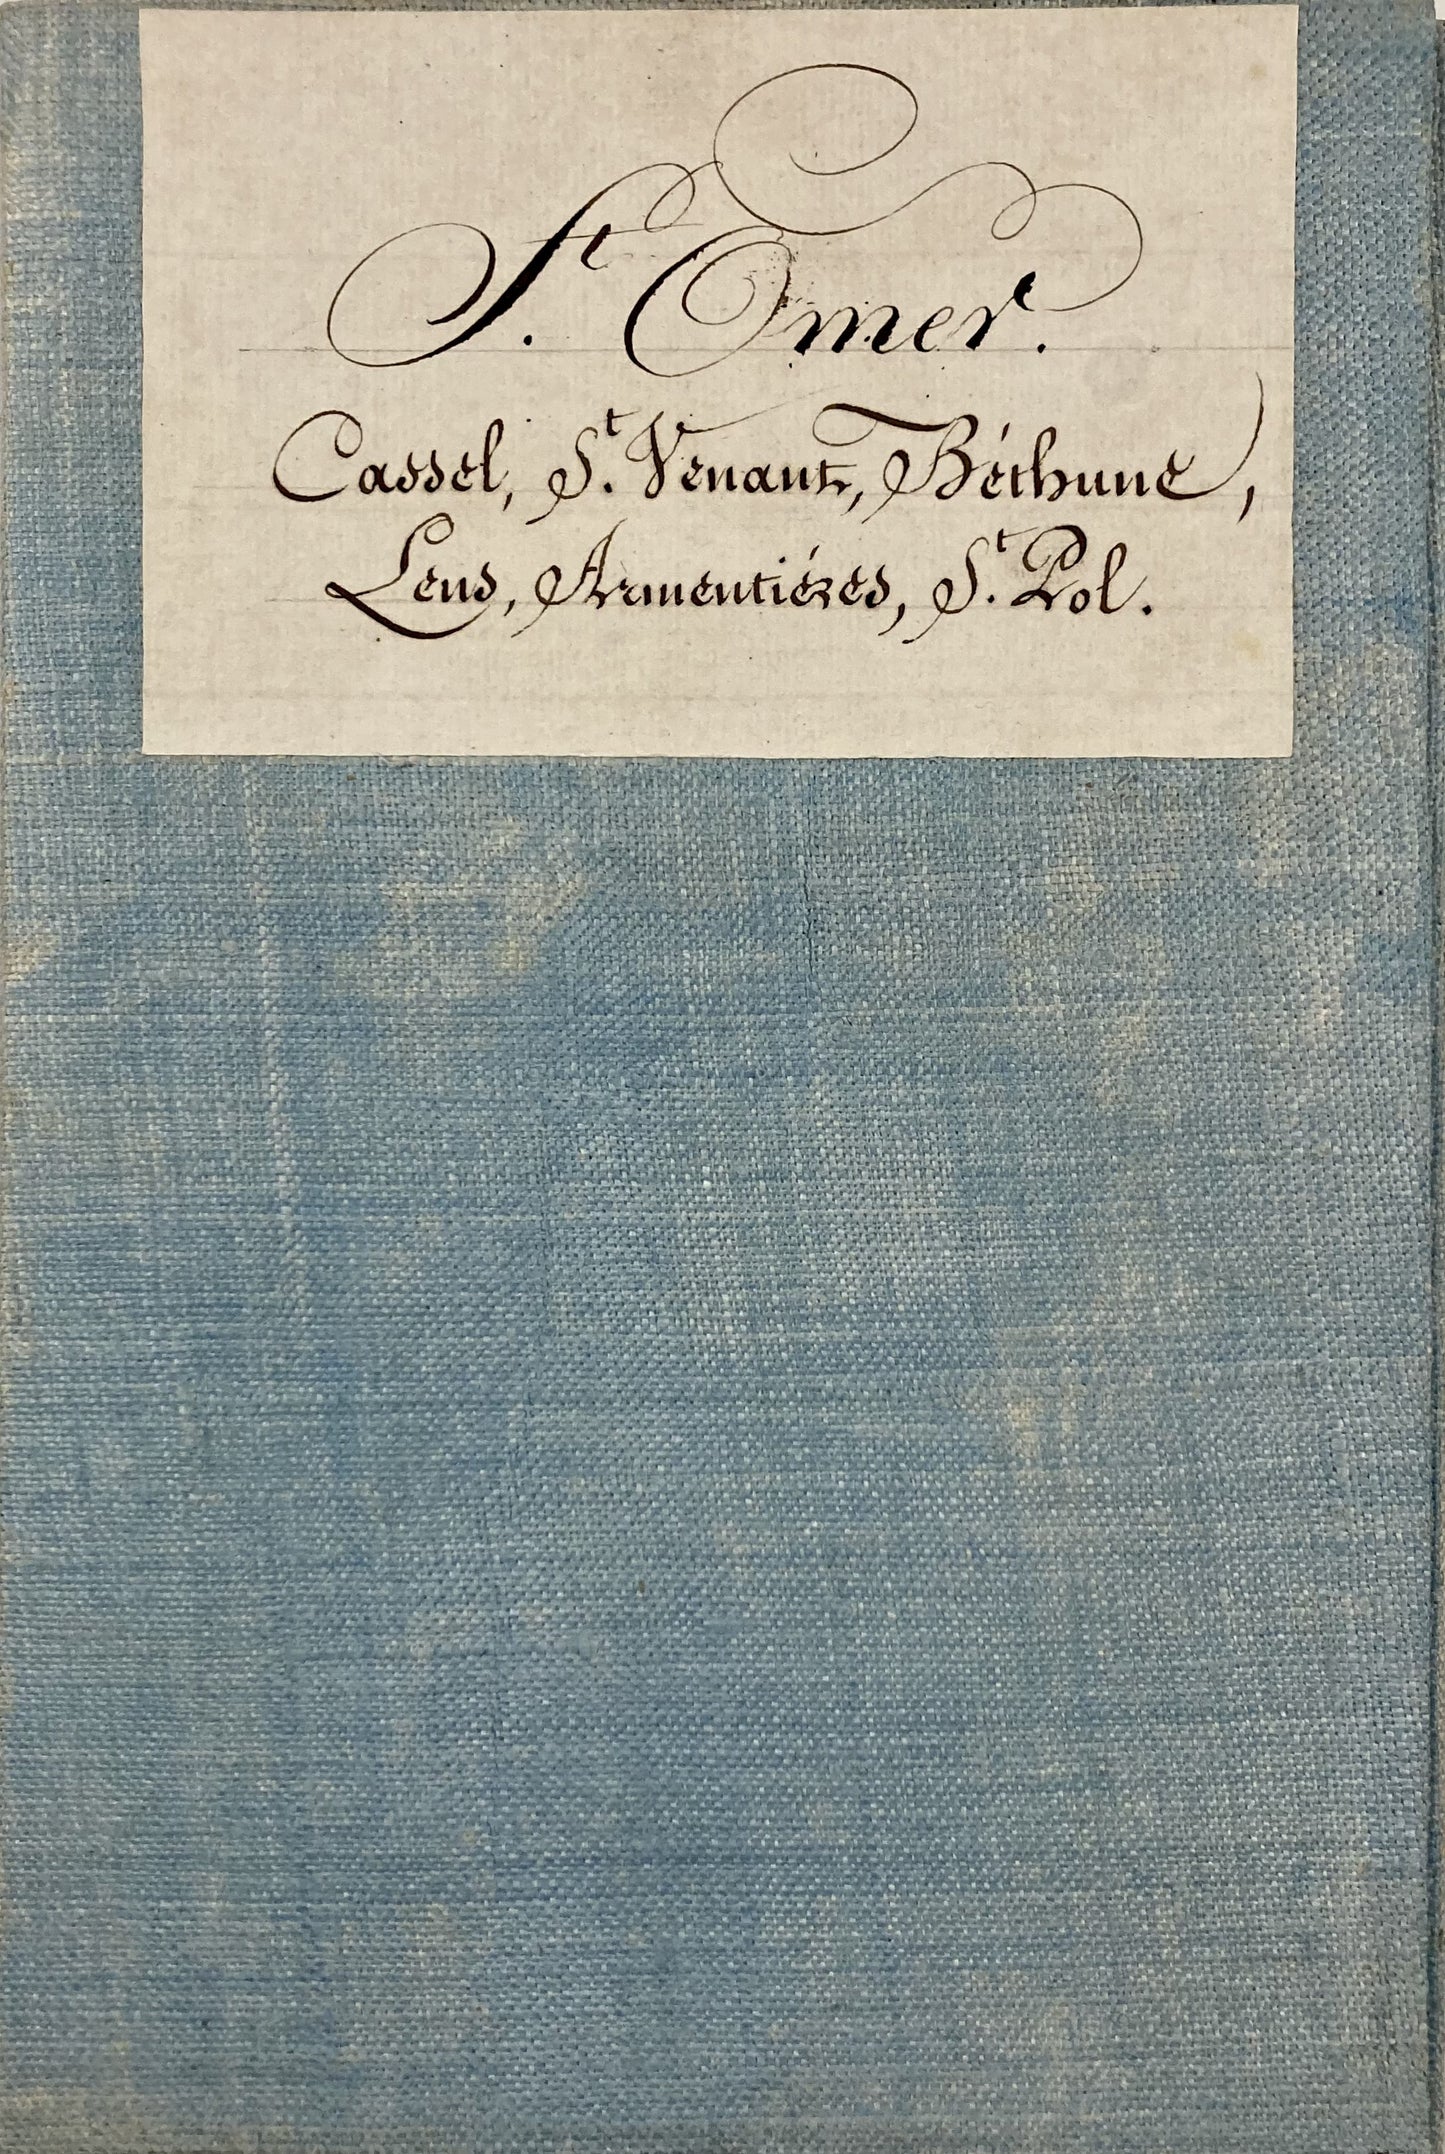 St. Omer.
Cassel, St. Venant, Béthune,
Lens, Armentiéres, St. Pol.